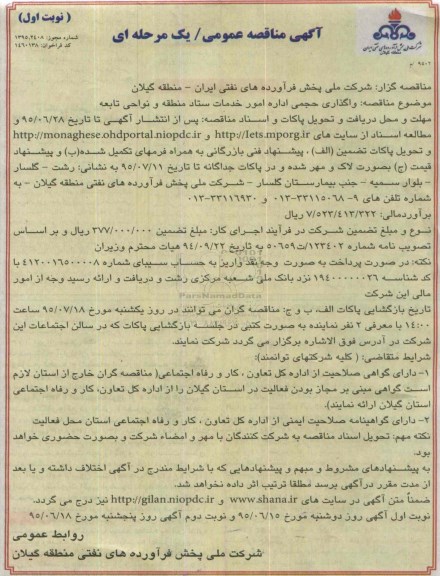 ( نوبت اول )
آگهی مناقصه عمومی/ یک مرحله ای
شماره مجوز: ۱۳۹۵،۲۴۰۸
کد فراخوان: ۱۴۶۰۱۳۸
۹۵۰۶ م
مناقصه گزار: شرکت ملی پخش فرآورده های نفتی ایران - منطقه گیلان
موضوع مناقصه: واگذاری حجمی اداره امور خدمات ستاد منطقه و نواحی تابعه
مهلت و محل دریافت و تحویل پاکات و اسناد مناقصه: پس از انتشار آگهی تا تاریخ ۹۵/۰۶/۲۸ و
مطالعه اسناد از سایت های http://Iets.mporg.ir و http://monaghese.ohdportal.niopdc.ir
و تحویل پاکات تضمین (الف) ، پیشنهاد فنی بازرگانی به همراه فرمهای تکمیل شده(ب) و پیشنهاد
قیمت (ج) بصورت لاک و مهر شده و در پاکات جداگانه تا تاریخ ۹۵/۰۷/۱۱ به نشانی: رشت - گلسار
- بلوار سمیه - جنب بیمارستان گلسار - شرکت ملی پخش فرآورده های نفتی منطقه گیلان - به
شماره تلفن های ۹- ۳۳۱۱۵۰۶۸-۰۱۳ و ۳۳۱۱۶۹۳۰-۰۱۳
برآوردمالی: ۷/۵۲۳/۴۱۳/۳۲۲ ریال
نوع و مبلغ تضمین شرکت در فرآیند اجرای کار: مبلغ تضمین ۳۷۷/۰۰۰/۰۰۰ ریال و بر اساس
تصویب نامه شماره ۱۲۳۴۰۲/ت۵۰۶۵۹ به تاریخ ۹۴/۰۹/۲۲ هیات محترم وزیران
نکته: در صورت پرداخت به صورت وجه نقد واریز به حساب سیبای شماره ۴۱۲۰۰۱۶۵۰۰۰۰۸ با
کد شناسه ۱۹۴۰۰۰۰۰۰۲۶ نزد بانک ملی شعبه مرکزی رشت و دریافت و ارائه رسید وجه از امور
مالی این شرکت
تاریخ بازگشایی پاکات الف، ب و ج: مناقصه گران می توانند در روز یکشنبه مورخ ۹۵/۰۷/۱۸ ساعت
۱۴:۰۰ با معرفی ۲ نفر نماینده به صورت کتبی در جلسه بازگشایی پاکات که در سالن اجتماعات این
شرکت در آدرس فوق الاشاره برگزار می گردد شرکت نمایند.
شرایط متقاضی: ( کلیه شرکتهای توانمند):
۱- دارای گواهی صلاحیت از اداره کل تعاون ، کار و رفاه اجتماعی( مناقصه گران خارج از استان لازم
است گواهی مبنی بر مجاز بودن فعالیت در استان گیلان را از اداره کل تعاون، کار و رفاه اجتماعی
استان گیلان ارائه نمایند).
۲- دارای گواهینامه صلاحیت ایمنی از اداره کل تعاون ، کار و رفاه اجتماعی استان محل فعالیت
نکته مهم: تحویل اسناد مناقصه به شرکت کنندگان با مهر و امضاء شرکت و بصورت حضوری خواهد
بود.
به پیشنهادهای مشروط و مبهم و پیشنهادهایی که با شرایط مندرج در آگهی اختلاف داشته و یا بعد
از مدت مقرر درآگهی برسد مطلقا ترتیب اثر داده نخواهد شد.
ضمناً متن آگهی در سایت های www.shana.ir و http://gilan.niopdc.ir نیز درج می گردد.
نوبت اول آگهی روز دوشنبه مورخ ۹۵/۰۶/۱۵ و نوبت دوم آگهی روز پنجشنبه مورخ ۹۵/۰۶/۱۸
روابط عمومی
شرکت ملی پخش فرآورده های نفتی منطقه گیلان
ParsNamadData